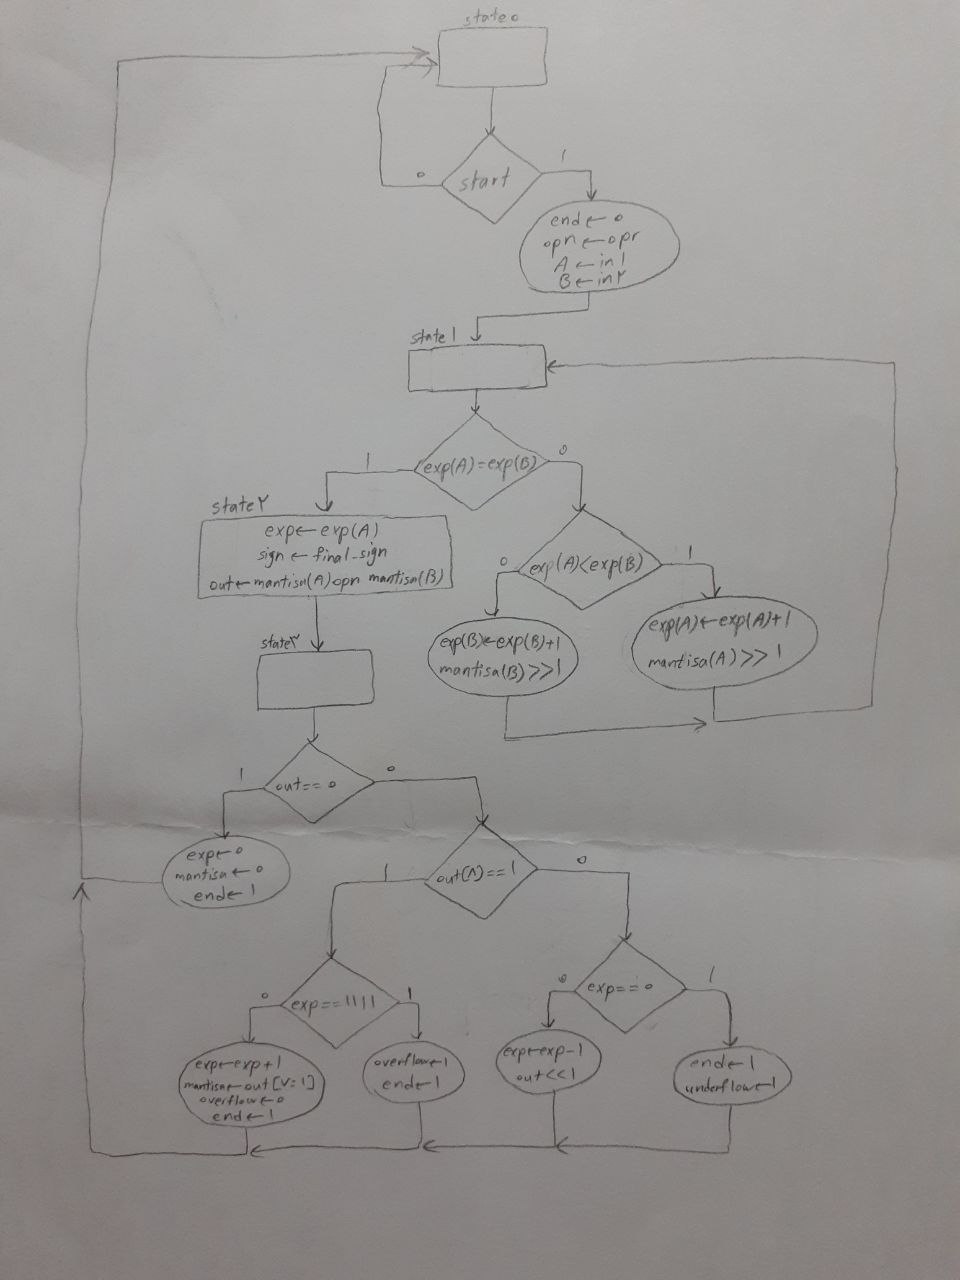 state ۰
start
۰
1
end ← ۰
opn ← opr
A ← in 1
B ← in ۲
state 1
exp(A) = exp(B)
1
۰
state ۲
exp ← exp(A)
sign ← final_sign
out ← mantisa(A) opn mantisa(B)
exp(A) < exp(B)
۰
1
exp(B) ← exp(B)+1
mantisa(B) >> 1
exp(A) ← exp(A)+1
mantisa(A) >> 1
state ۳
out == ۰
1
۰
exp ← ۰
mantisa ← ۰
end ← 1
out(۸) == 1
1
۰
exp == 1111
۰
1
exp == ۰
۰
1
exp ← exp+1
mantisa ← out[۷:1]
overflow ← ۰
end ← 1
overflow ← 1
end ← 1
exp ← exp-1
out << 1
end ← 1
underflow ← 1